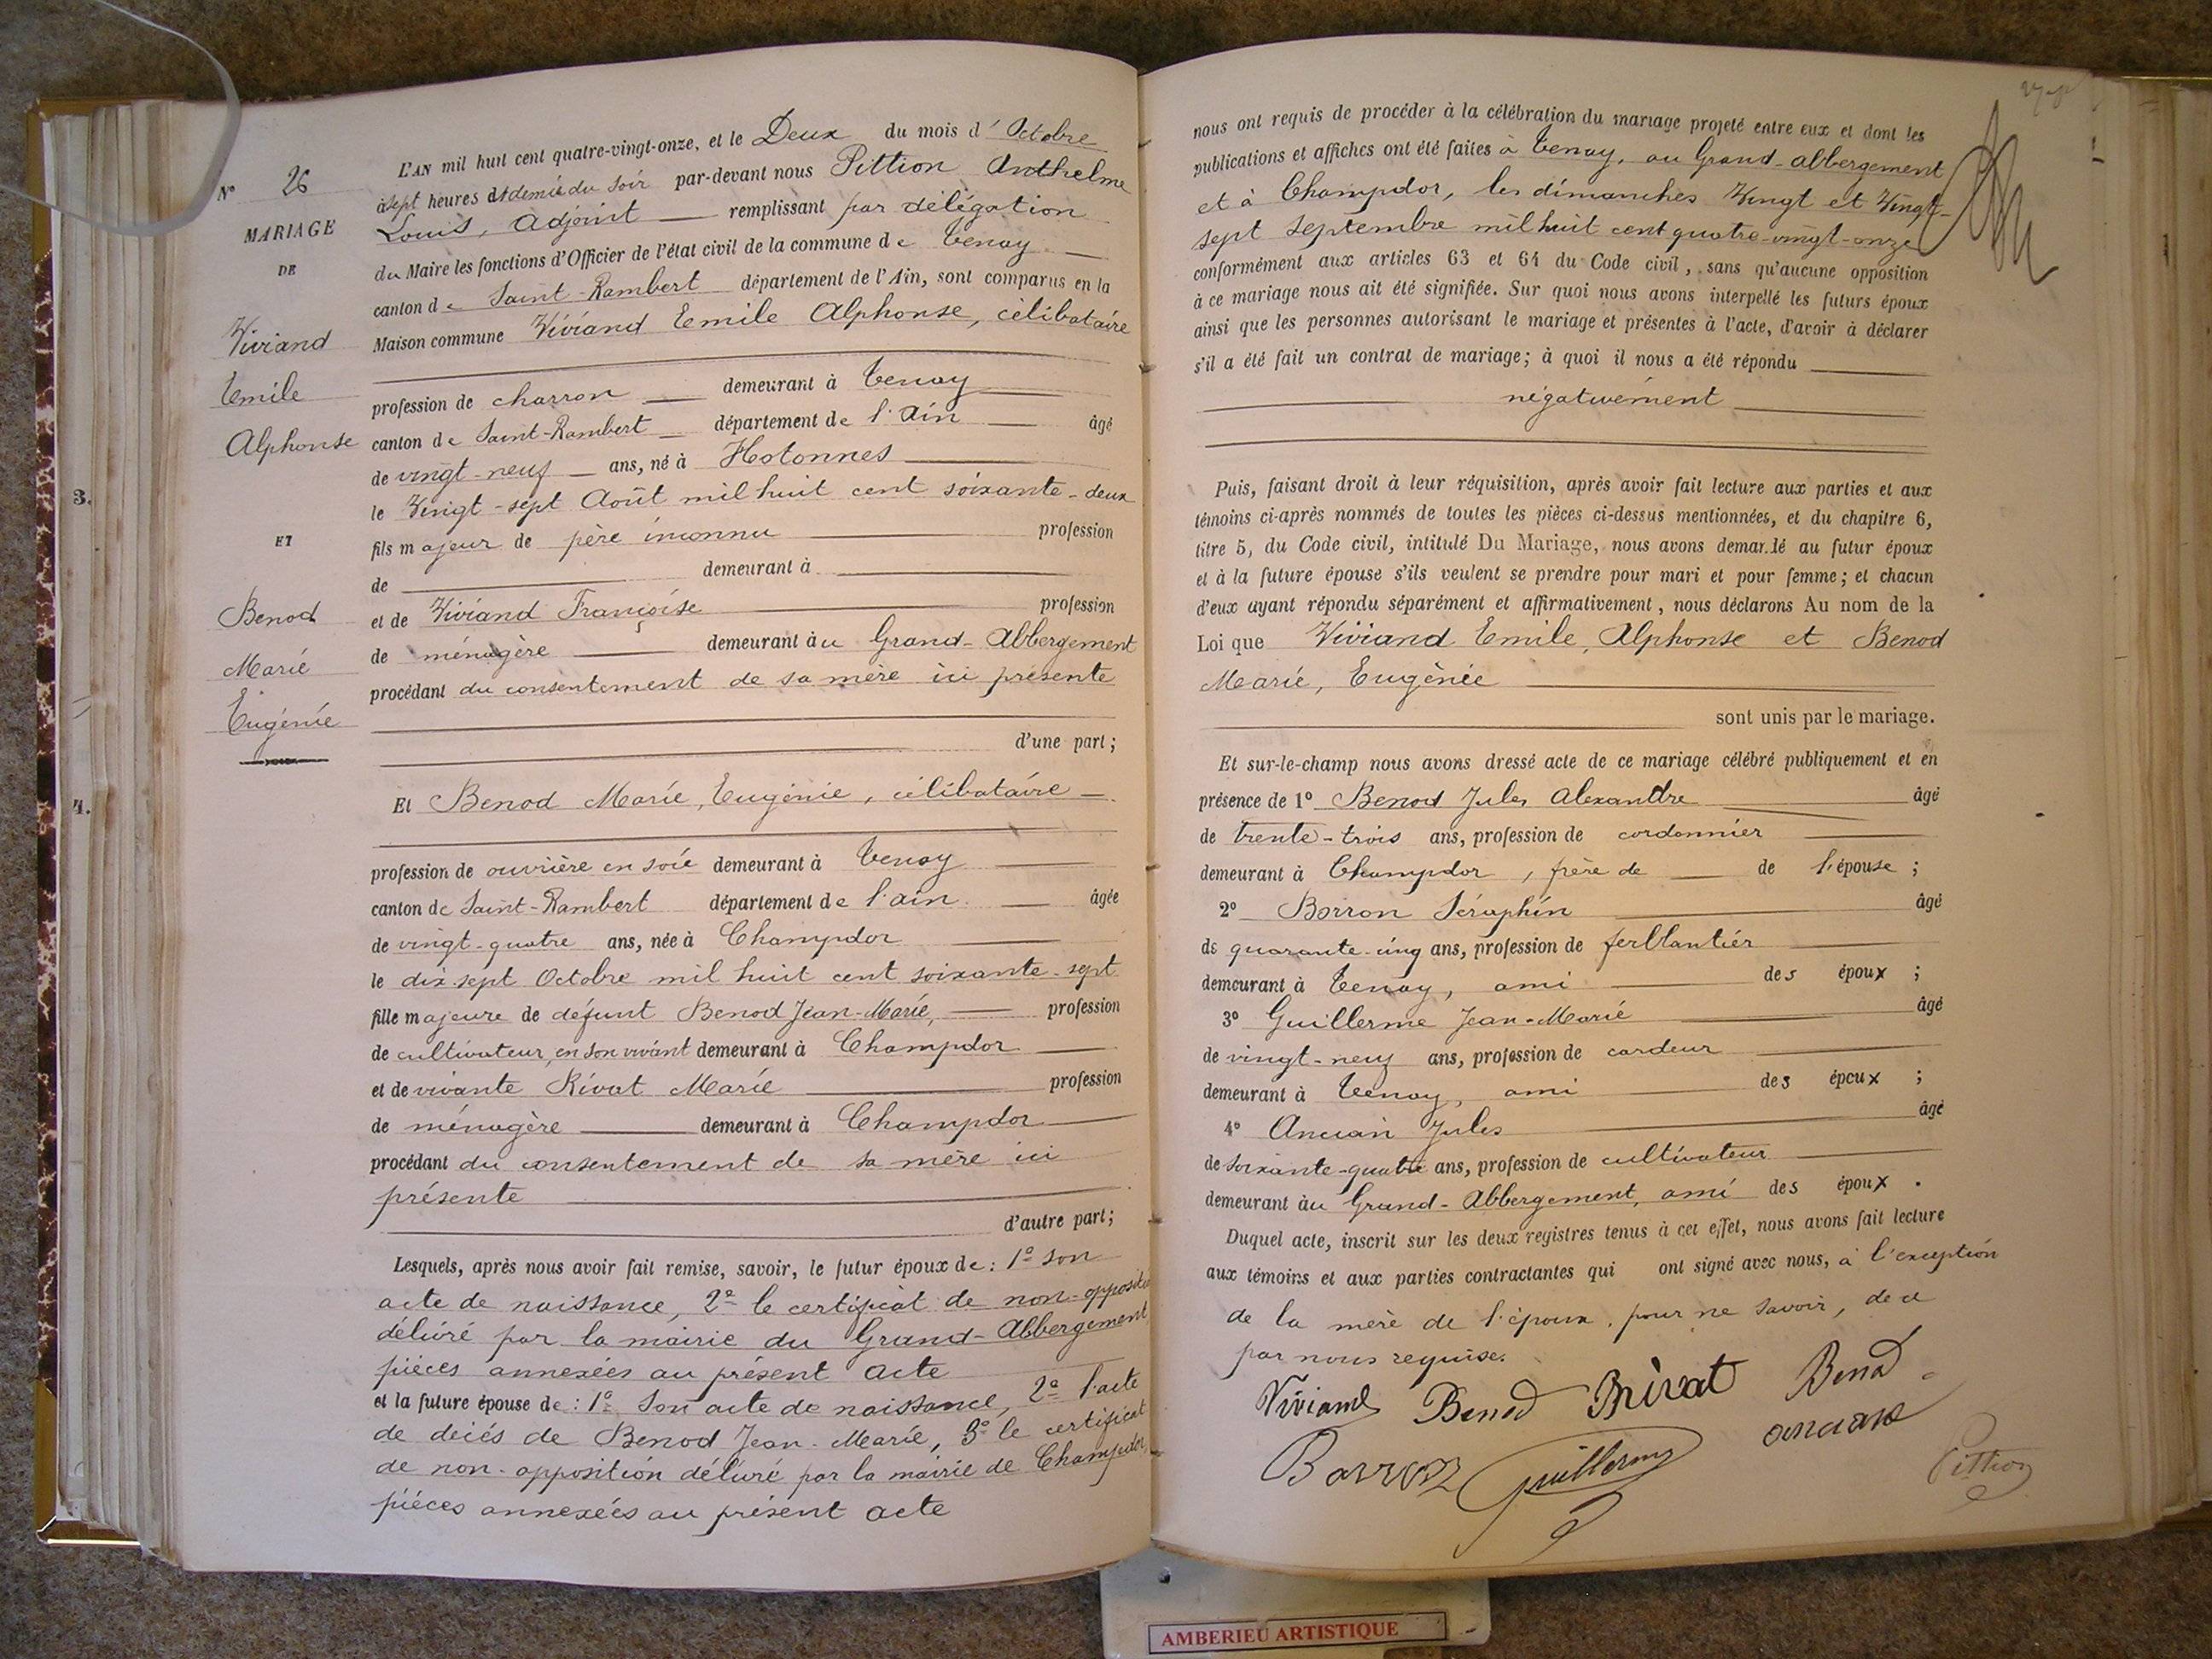 N° 26
MARIAGE
DE
Viviand
Emile
Alphonse
ET
Benod
Marie
Eugénie
3.
4.
L'AN mil huit cent quatre-vingt-onze, et le Deux du mois d'Octobre
à sept heures et demie du soir par-devant nous Pittion Anthelme
Louis, Adjoint remplissant par délégation
du Maire les fonctions d'Officier de l'état civil de la commune de Tenay
canton de Saint-Rambert département de l'Ain, sont comparus en la
Maison commune Viviand Emile Alphonse, célibataire
profession de charron demeurant à Tenay
canton de Saint-Rambert département de l'Ain âgé
de vingt-neuf ans, né à Hotonnes
le Vingt-sept Août mil huit cent soixante-deux
fils majeur de père inconnu profession
de demeurant à
et de Viviand Françoise profession
de ménagère demeurant àu Grand-Abbergement
procédant du consentement de sa mère ici présente
d'une part;
Et Benod Marie, Eugénie, célibataire
profession de ouvrière en soie demeurant à Tenay
canton de Saint-Rambert département de l'ain âgée
de vingt-quatre ans, née à Champdor
le dix sept Octobre mil huit cent soixante-sept
fille majeure de défunt Benod Jean-Marie, profession
de cultivateur, en son vivant demeurant à Champdor
et de vivante Rivat Marie profession
de ménagère demeurant à Champdor
procédant du consentement de sa mère ici
présente
d'autre part;
Lesquels, après nous avoir fait remise, savoir, le futur époux de: 1° son
acte de naissance, 2° le certificat de non-opposition
délivré par la mairie du Grand-Abbergement
pièces annexées au présent acte
et la future épouse de: 1° Son acte de naissance, 2° l'acte
de décés de Benod Jean-Marie, 3° le certificat
de non-opposition délivré par la mairie de Champdor,
pièces annexées au présent acte
nous ont requis de procéder à la célébration du mariage projeté entre eux et dont les
publications et affiches ont été faites à Tenay, au Grand-abbergement
et à Champdor, les dimanches Vingt et Vingt-
sept Septembre mil huit cent quatre-vingt-onze
conformément aux articles 63 et 64 du Code civil, sans qu'aucune opposition
à ce mariage nous ait été signifiée. Sur quoi nous avons interpellé les futurs époux
ainsi que les personnes autorisant le mariage et présentes à l'acte, d'avoir à déclarer
s'il a été fait un contrat de mariage; à quoi il nous a été répondu
négativement
Puis, faisant droit à leur réquisition, après avoir fait lecture aux parties et aux
témoins ci-après nommés de toutes les pièces ci-dessus mentionnées, et du chapitre 6,
titre 5, du Code civil, intitulé Du Mariage, nous avons demandé au futur époux
et à la future épouse s'ils veulent se prendre pour mari et pour femme; et chacun
d'eux ayant répondu séparément et affirmativement, nous déclarons Au nom de la
Loi que Viviand Emile, Alphonse et Benod
Marie, Eugénie
sont unis par le mariage.
Et sur-le-champ nous avons dressé acte de ce mariage célébré publiquement et en
présence de 1° Benod Jules Alexandre âgé
de trente-trois ans, profession de cordonnier
demeurant à Champdor, frère de de l'épouse;
2° Borron Séraphin âgé
de quarante-cinq ans, profession de ferblantier
demeurant à Tenay, ami des époux;
3° Guillerme Jean-Marie âgé
de vingt-neuf ans, profession de cardeur
demeurant à Tenay, ami des époux;
4° Ancian Jules âgé
de soixante-quatre ans, profession de cultivateur
demeurant àu Grand-Abbergement, ami des époux.
Duquel acte, inscrit sur les deux registres tenus à cet effet, nous avons fait lecture
aux témoins et aux parties contractantes qui ont signé avec nous, à l'exception
de la mère de l'époux, pour ne savoir, de ce
par nous requise.
Viviand Benod Rivat Benod
Borron Guillerme ancian
Pittion
AMBERIEU ARTISTIQUE